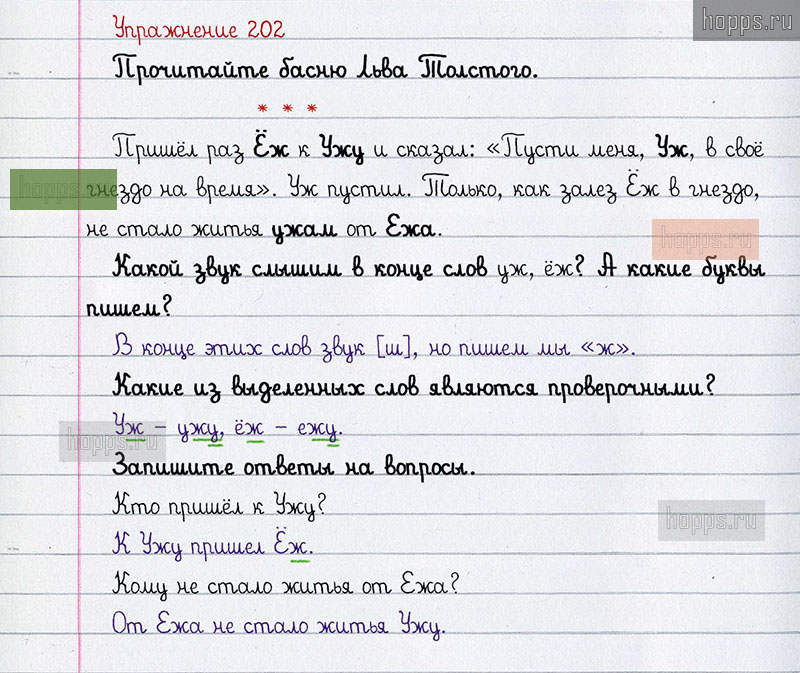 Упражнение 202
hopps.ru
Прочитайте басню Льва Толстого.
* * *
Пришёл раз Ёж к Ужу и сказал: «Пусти меня, Уж, в своё
hopps.ru
гнездо на время». Уж пустил. Только, как залез Ёж в гнездо,
не стало житья ужам от Ежа.
hopps.ru
Какой звук слышим в конце слов уж, ёж? А какие буквы
пишем?
В конце этих слов звук [ш], но пишем мы «ж».
Какие из выделенных слов являются проверочными?
Уж – ужу, ёж – ежу.
hopps.ru
Запишите ответы на вопросы.
Кто пришёл к Ужу?
hopps.ru
К Ужу пришел Ёж.
Кому не стало житья от Ежа?
От Ежа не стало житья Ужу.